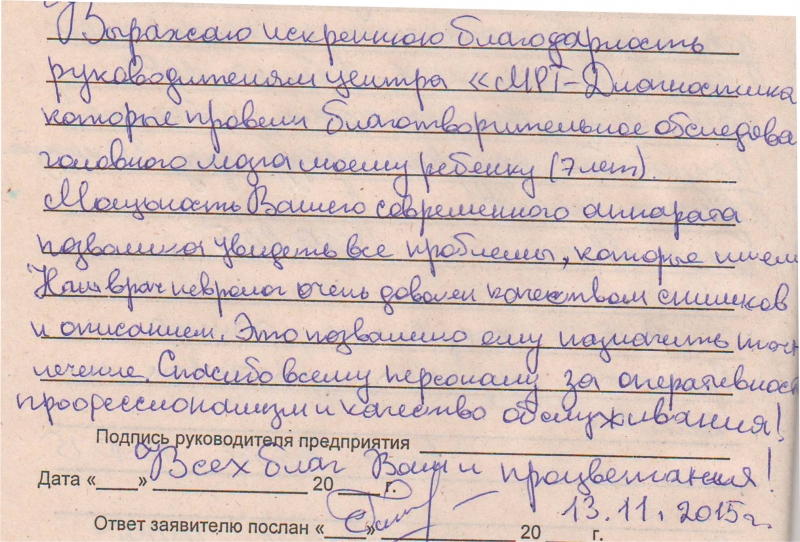 Выражаю искреннюю благодарность
руководителям центра «МРТ-Диагностика
которые провели благотворительное обследова
головного мозга моему ребенку (7 лет).
Мощьность Вашего современного аппарата
позволила увидеть все проблемы, которые имеем
Наш врач невролог очень доволен качеством снимков
и описанием. Это позволило ему назначить точн
лечение. Спасибо всему персоналу за оперативност
профессионализм и качество обслуживания!
Подпись руководителя предприятия
Всех благ Вам и процветания!
Дата «____» ____________ 20 ____ г.
13.11.2015г.
Ответ заявителю послан «____» ____________ 20 ____ г.